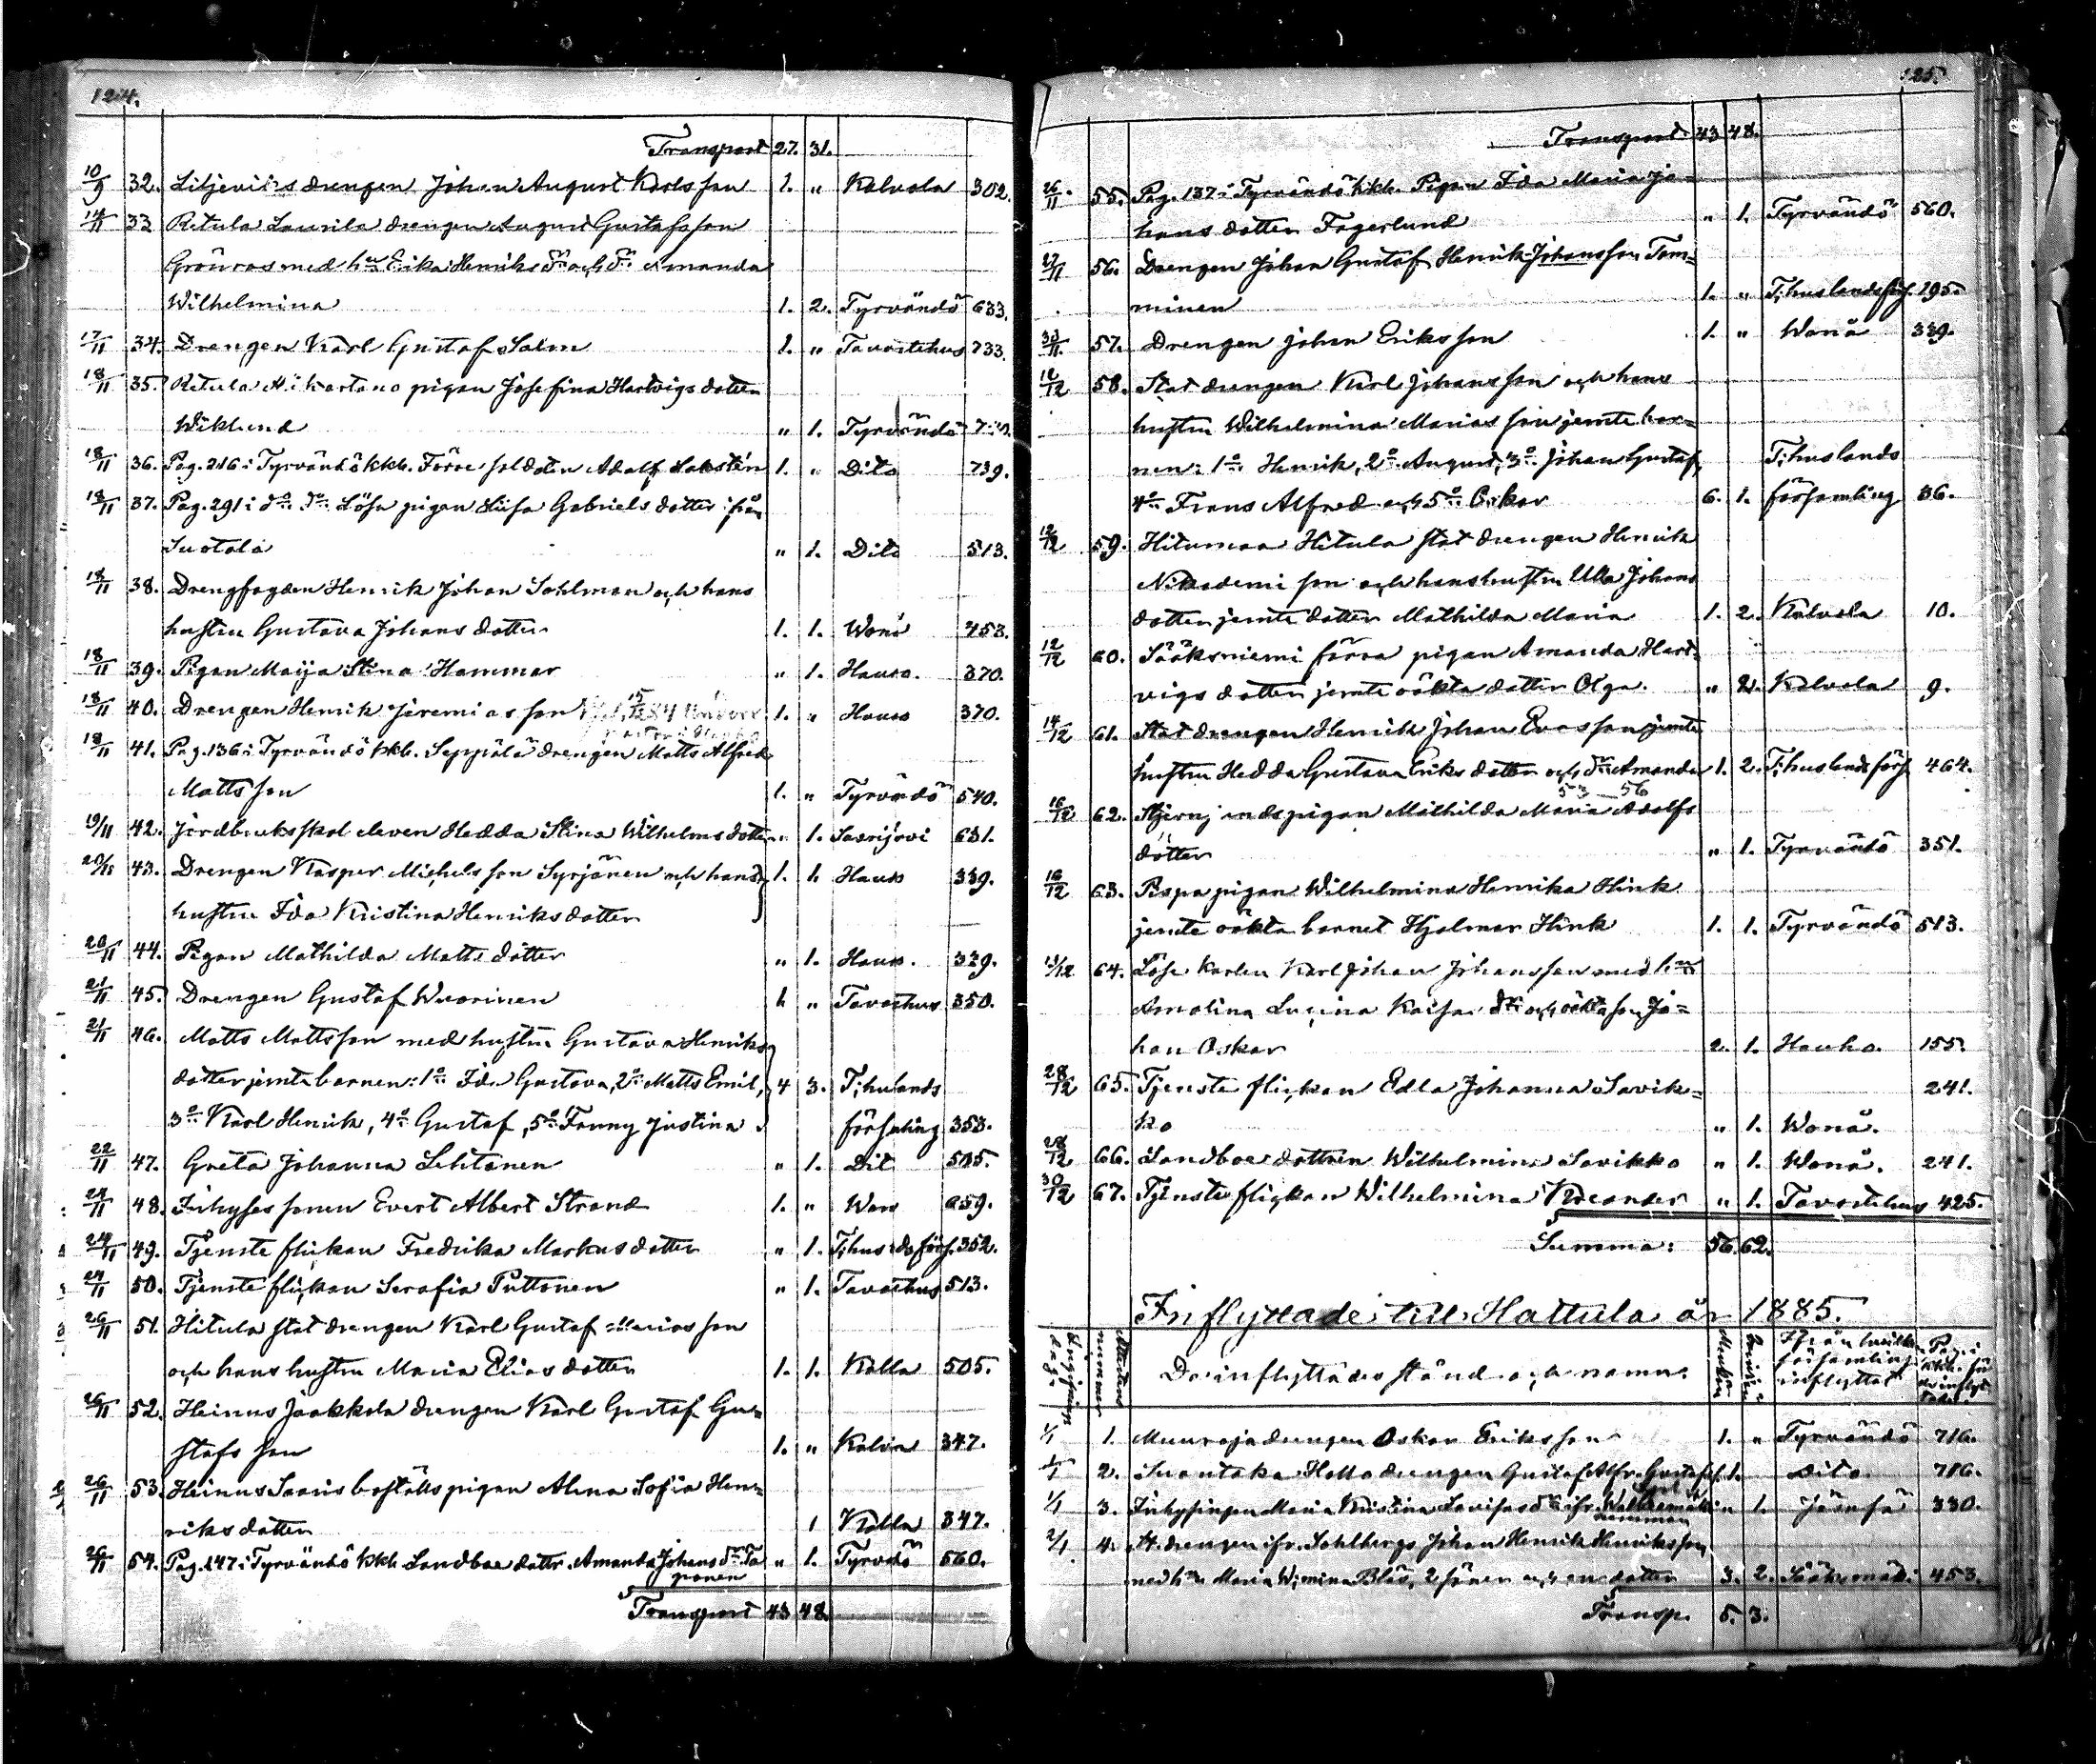 124.
Transport 27. 31.
10/9 32. Liljeviks drengen Johan August Karlsson 1. " Kalvola 302.
14/11 33 Retula Laurila drengen August Gustafsson
Grönroos med h:u Erika Henriks d:r och d:r Amanda
Wilhelmina 1. 2. Tyrvändö 633.
17/11 34. Drengen Karl Gustaf Salm 1. " Tavastehus 733.
18/11 35. Retula Alikartano pigan Josefina Hartvigs dotter
Wiklund " 1. Tyrvändö
18/11 36. Pag. 216 i Tyrvändö kkb. Förre soldaten Adolf Laksten 1. " Dito 739.
18/11 37. Pag. 291 i d:o d:o Lösa pigan Liisa Gabriels dotter ifrån
Suotala " 1. Dito 513.
18/11 38. Drengfogden Henrik Johan Sahlman och hans
hustru Gustava Johans dotter 1. 1. Wånå 453.
18/11 39. Pigan Maija Stina Hammar " 1. Hauho. 370.
18/11 40. Drengen Henrik Jeremiasson 1. " Hauho 370.
18/11 41. Pag. 136 i Tyrvändö kkb. Seppälä drengen Matts Alfred
Mattsson 1. " Tyrvändö 540.
19/11 42. Jordbruksskol eleven Hedda Stina Wilhelms dotter " 1. Saarijärvi 631.
20/11 43. Drengen Kasper Michelsson Syrjänen och hans 1. 1. Hauho 339.
hustru Ida Kristina Henriksdotter
20/11 44. Pigan Mathilda Matts dotter " 1. Hauho. 339.
21/11 45. Drengen Gustaf Wuorinen 1. " Tavastehus 350.
21/11 46. Matts Mattsson med hustru Gustava Henriks
dotter jemte barnen: 1:o Ida Gustava, 2:o Matts Emil, 4 3. T;huslands
3:o Karl Henrik, 4:o Gustaf, 5:o Fanny Justina församling 353.
22/11 47. Greta Johanna Lehtonen " 1. Dit 515.
24/11 48. Inhysessonen Evert Albert Strand 1. " Wånå 659.
24/11 49. Tjenste flickan Fredrika Markus dotter " 1. T;huslds förs. 352.
24/11 50. Tjenste flickan Serafia Puttonen " 1. Tavastehus 513.
26/11 51. Hitula statdrengen Karl Gustaf Mariasson
och hans hustru Maria Elias dotter 1. 1. Kalvola 505.
26/11 52. Heinus Jaakkola drengen Karl Gustaf Gu=
stafsson 1. " Kalvola 347.
26/11 53. Heinus Saaris boställs pigan Alma Sofia Hen=
riksdotter 1 Kalvola 347.
26/11 54. Pag. 147 i Tyrvändö kkb Landboe dottr. Amanda Johans d:r Ta " 1. Tyrvdö 560.
panen
Transport 43 48.
125.
Transport 43 48.
26/11 55. Pag. 137 i Tyrvändö kkb. Pigan Ida Maria Jo=
hans dotter Fagerlund " 1. Tyrvändö 560.
27/11 56. Drengen Johan Gustaf Henrik Johansson Tom=
minen 1. " T;huslands förs. 195.
30/11 57. Drengen Johan Eriksson 1. " Wånå 339.
12/12 58. Stat drengen Karl Johansson och hans
hustru Wilhelmina Mariasson jemte bar=
nen: 1:o Henrik, 2:o August, 3:o Johan Gustaf, T;huslands
4:o Frans Alfred och 5:o Oskar 6. 1. församling 36.
12/12 59. Hitumaa Hitula statdrengen Henrik
Nikodemi son och hans hustru Ulla Johans
dotter jemte dotter Mathilda Maria 1. 2. Kalvola 10.
12/12 60. Sääksniemi förra pigan Amanda Hart=
vigs dotter jemte oäkta dotter Olga. " 2. Kalvola 9.
14/12 61. Stat drengen Henrik Johan Evasson jemte
hustru Hedda Gustava Eriks dotter och d:r Amanda 1. 2. T;huslands förs 464.
53 56
16/12 62. pigan Mathilda Maria Adolfs
dotter " 1. Tyrvändö 351.
16/12 63. Pispa pigan Wilhelmina Henrika Hink
jemte oäkta barnet Hjalmar Hink 1. 1. Tyrvändö 513.
18/12 64. Löse karlen Karl Johan Johansson med h:u
Amalina Lucina Kaisa d:r och oäkta son Jo=
han Oskar 2. 1. Hauho. 155.
28/12 65. Tjenste flickan Edla Johanna Savik= 241.
ko " 1. Wånå.
28/12 66. Landboe dottren Wilhelmina Savikko " 1. Wånå. 241.
30/12 67. Tjenste flickan Wilhelmina Kreander " 1. Tavastehus 425.
Summa: 56. 62.
Inflyttade till Hattula år 1885.
Ingifnings dag. Attestens nummer De inflyttades stånd och namn. Mankön Qvinkön Ifrån hvilken församling inflyttat Pag. i kkb. för de inflyttade.
1/1 1. Muuroja drengen Oskar Eriksson 1. " Tyrvändö 716.
1/1 2. Suontaka Hollo drengen Gustaf Alfr. Gustafsson 1. Dito. 716.
1/1 3. Inhysingen Maria Kristina Lovisas d:r ifr. " 1. Jämsä 330.
2/1 4. St. drengen ifr. Sahlbergs Johan Henrik Henriksson
med h:u Maria W;mina Blås, 2 söner och en dotter 3. 2. Sääksmäki 453.
Transp. 5. 3.